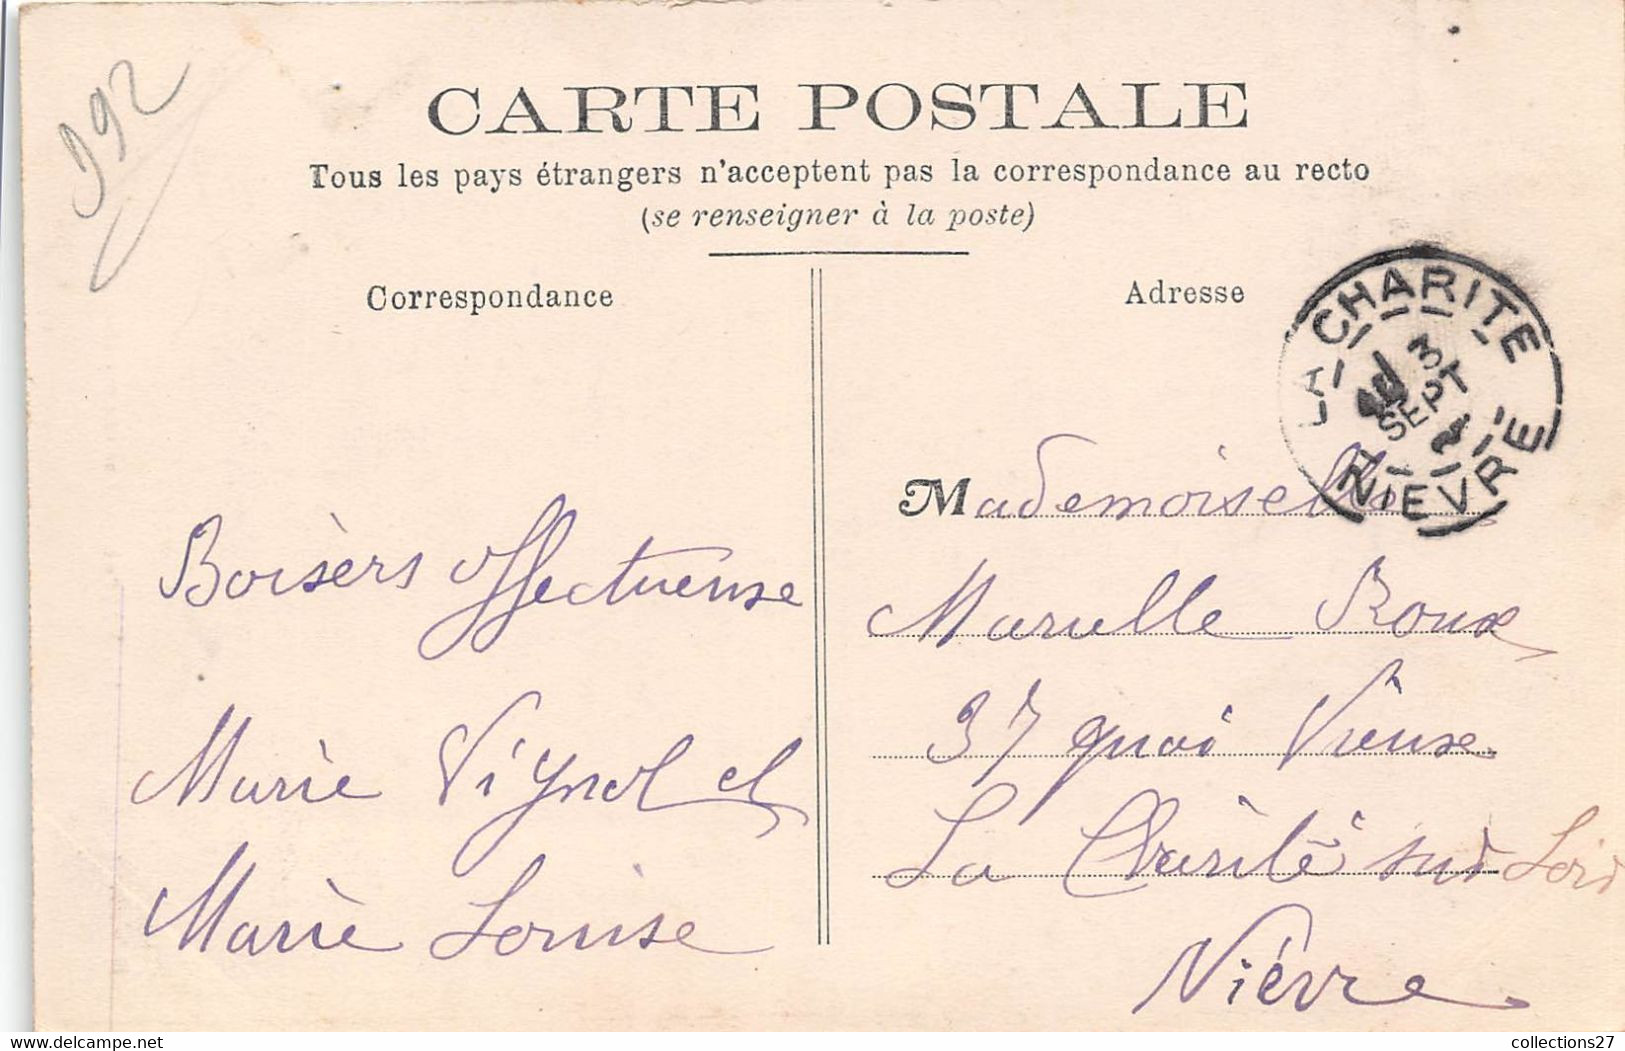 CARTE POSTALE
Tous les pays étrangers n'acceptent pas la correspondance au recto
(se renseigner à la poste)
Correspondance
Adresse
LA CHARITE
3
SEPT
NIEVRE
Boisèrs affectueuse
Marie Vignol et
Marie Louise
Mademoiselle
Marielle Roux
37 quai Vieuse
La Charité sur Loir
Nièvre
392
collections27